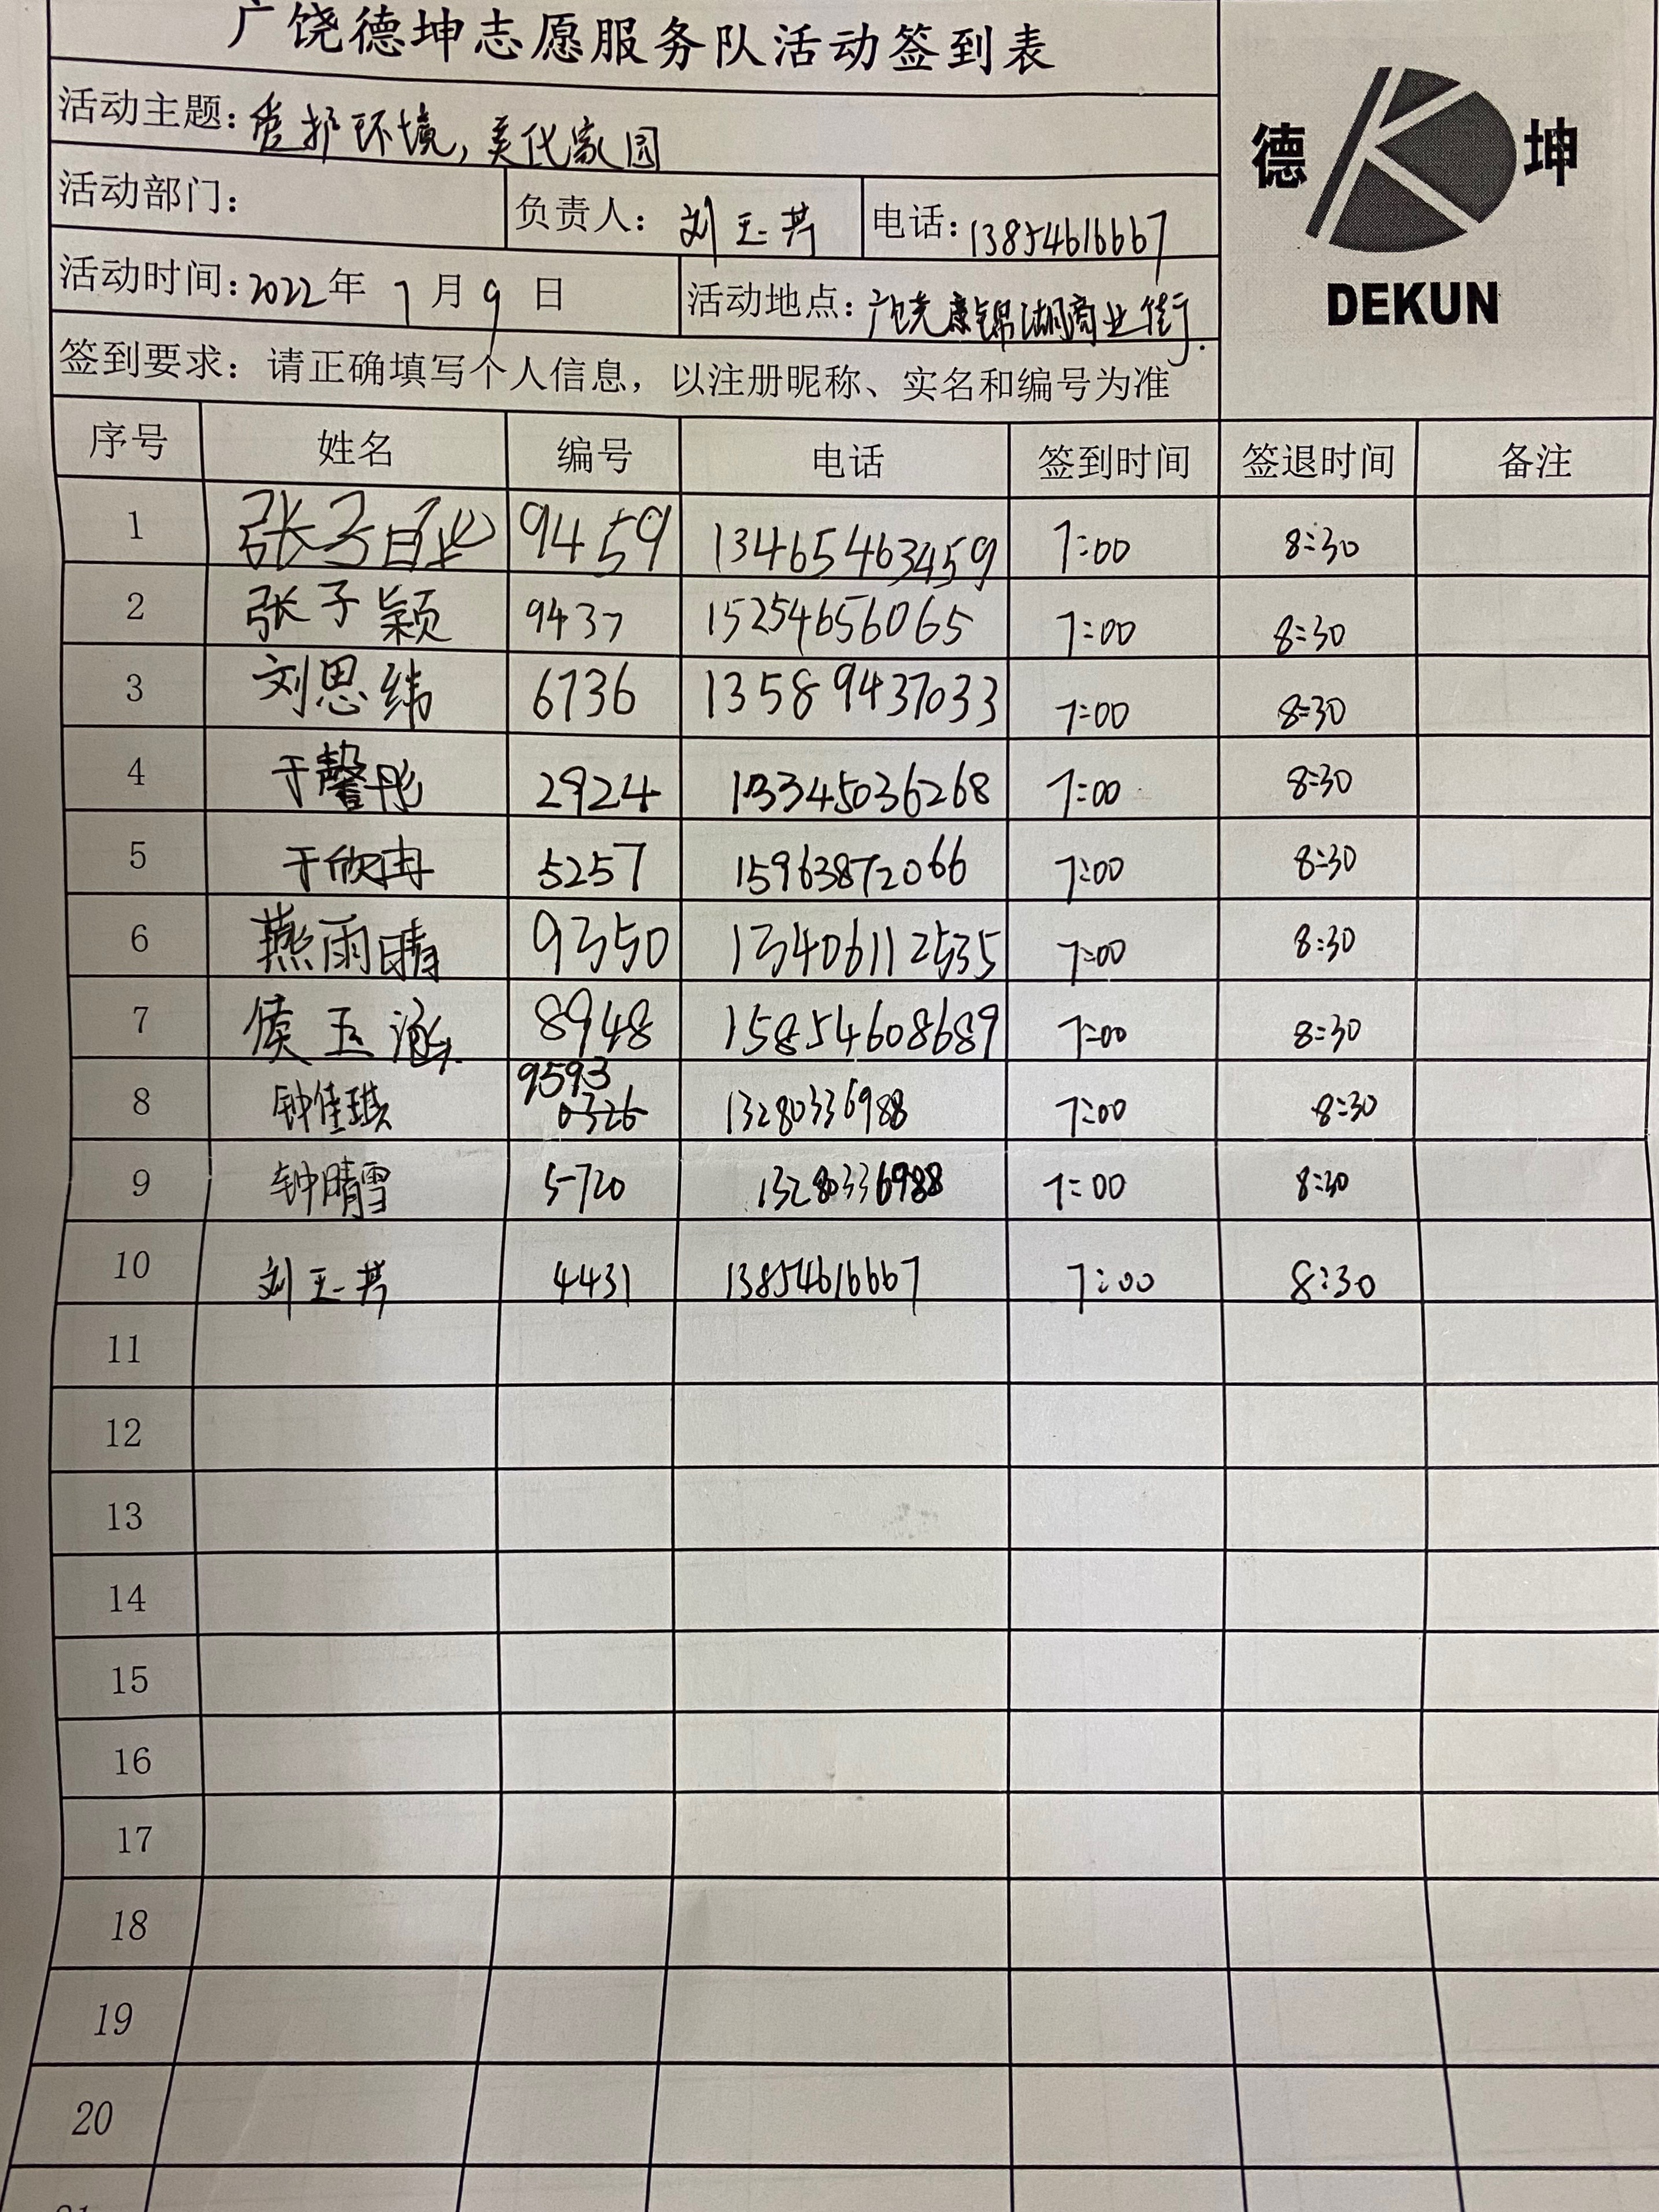 广饶德坤志愿服务队活动签到表
德 坤
DEKUN
活动主题：爱护环境，美化家园
活动部门： 负责人：刘玉芹 电话：13854616667
活动时间：2022年 7月9日 活动地点：广饶康锦湖商业街.
签到要求：请正确填写个人信息，以注册昵称、实名和编号为准
序号 姓名 编号 电话 签到时间 签退时间 备注
1 张子 9459 13465463459 7:00 8:30
2 张子颖 9437 15254656065 7:00 8:30
3 刘思纬 6736 13589437033 7:00 8:30
4 于馨彤 2924 13345036268 7:00 8:30
5 于欣冉 5257 15963872066 7:00 8:30
6 燕雨晴 9350 13406112535 7:00 8:30
7 侯玉涵 8948 15854608689 7:00 8:30
8 钟佳琪 9593 0326 13280336988 7:00 8:30
9 钟晴雪 5720 13280336988 7:00 8:30
10 刘玉芹 4431 13854616667 7:00 8:30
11
12
13
14
15
16
17
18
19
20